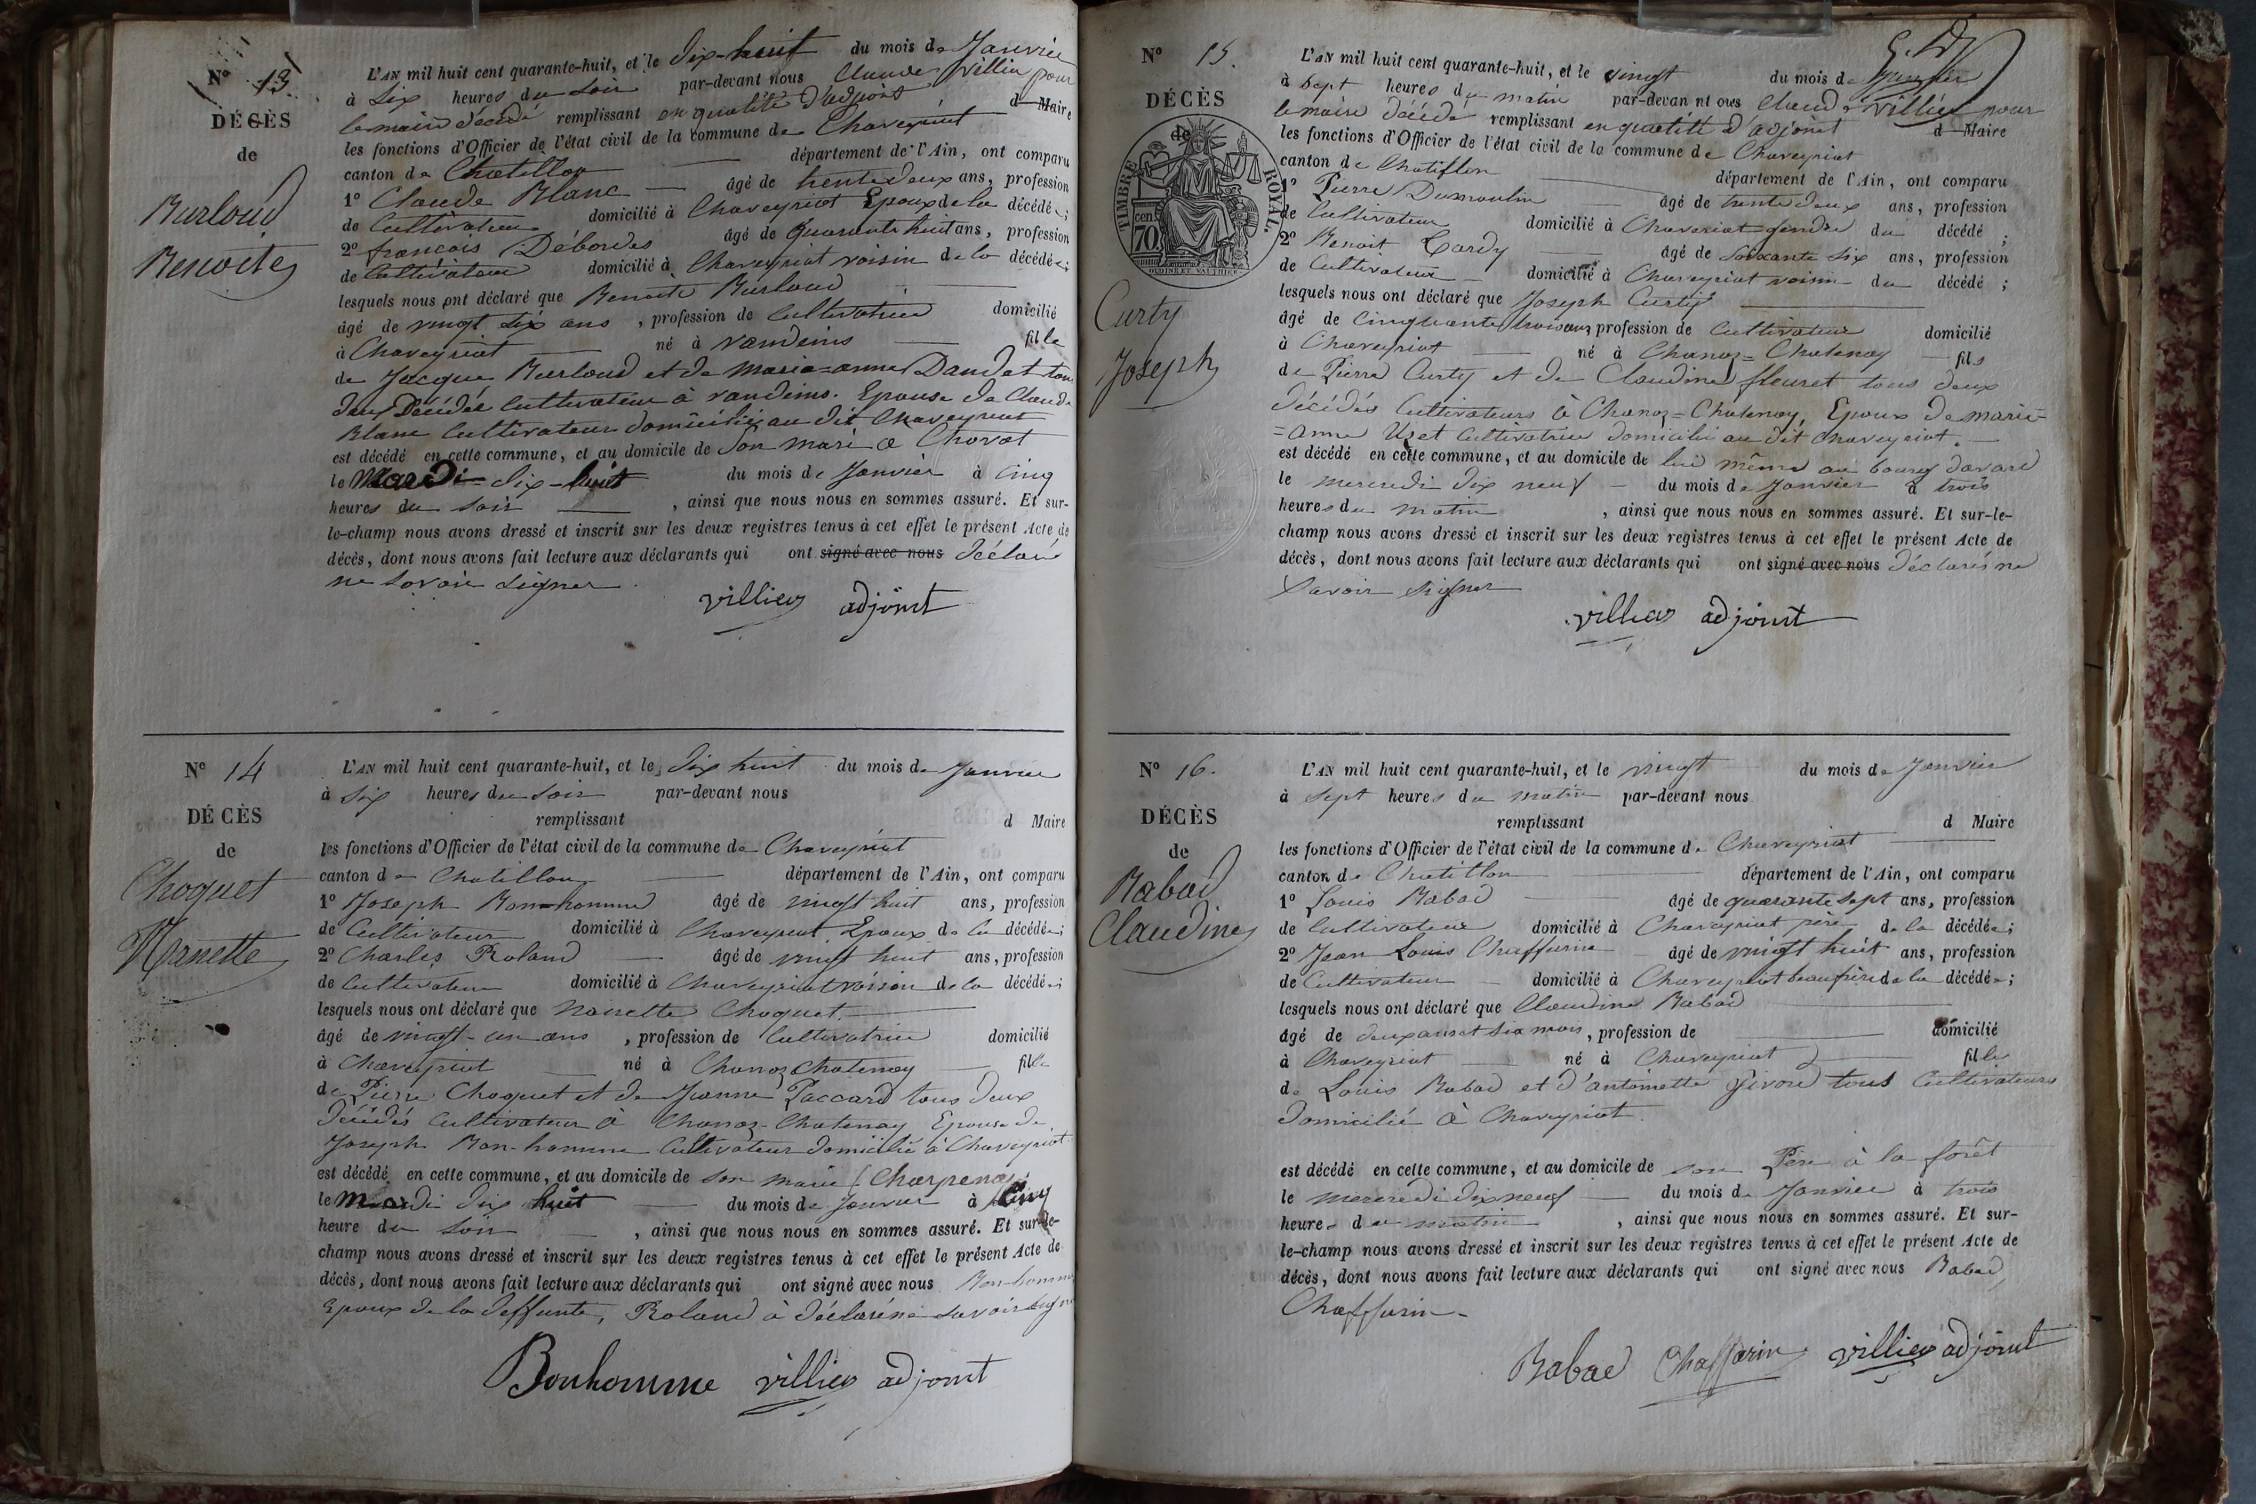 N° 13
DÉCÈS
de
Burloud
Benoite
L'AN mil huit cent quarante-huit, et le dix-huit du mois de Janvier
à Six heures du soir par-devant nous Claude Villier pour
le maire décédé remplissant en qualité d'adjoint d Maire
les fonctions d'Officier de l'état civil de la commune de Chaveyriat
canton de Chatillon département de l'Ain, ont comparu
1° Claude Blanc âgé de trente deux ans, profession
de Cultivateur domicilié à Chaveyriat Epoux de la décédée;
2° françois Débordes âgé de quarante huit ans, profession
de Cultivateur domicilié à Chaveyriat voisin de la décédée;
lesquels nous ont déclaré que Benoite Burloud
âgé de vingt six ans, profession de Cultivatrice domicilié
à Chaveyriat né à vandeins fille
de Jacque Burloud et de Marie-anne Dandet tou
deux Décédés Cultivateur à vandeins. Epouse de Claude
Blanc Cultivateur domicilié au dit Chaveyriat
est décédé en cette commune, et au domicile de Son mari a Chovat
le Mardi dix-huit du mois de Janvier à cinq
heures du soir, ainsi que nous nous en sommes assuré. Et sur-
le-champ nous avons dressé et inscrit sur les deux registres tenus à cet effet le présent Acte de
décès, dont nous avons fait lecture aux déclarants qui ont signé avec nous déclaré
ne savoir signer.
villier adjoint
N° 14
DÉCÈS
de
Choquet
Nanette
L'AN mil huit cent quarante-huit, et le dix huit du mois de Janvier
à six heures du soir par-devant nous
remplissant d Maire
les fonctions d'Officier de l'état civil de la commune de Chaveyriat
canton de Chatillon département de l'Ain, ont comparu
1° Joseph Bon-homme âgé de vingt huit ans, profession
de Cultivateur domicilié à Chaveyriat Epoux de la décédée;
2° Charles Roland âgé de vingt huit ans, profession
de Cultivateur domicilié à Chaveyriat voisin de la décédée;
lesquels nous ont déclaré que Nanette Choquet
âgé de vingt-un ans, profession de Cultivatrice domicilié
à Chaveyriat né à Chanoz Chatenay fille
de Pierre Choquet et de Jeanne Paccard tous deux
Décédés Cultivateur à Chanoz-Chatenay Epouse de
Joseph Bon-homme Cultivateur domicilié à Chaveyriat
est décédé en cette commune, et au domicile de son marie
le mardi dix huit du mois de Janvier à cinq
heure du soir, ainsi que nous nous en sommes assuré. Et sur-le-
champ nous avons dressé et inscrit sur les deux registres tenus à cet effet le présent Acte de
décès, dont nous avons fait lecture aux déclarants qui ont signé avec nous Bon-homme
Epoux de la deffunte, Roland à déclaré ne savoir signer
Bonhomme villier adjoint
N° 15.
DÉCÈS
de
TIMBRE ROYAL.
cen 70
Curty
Joseph
L'AN mil huit cent quarante-huit, et le vingt du mois de Janvier
à Sept heures du matin par-devan nt ous Claude Villier pour
le maire décédé remplissant en qualité d'adjoint d Maire
les fonctions d'Officier de l'état civil de la commune de Chaveyriat
canton de Chatillon département de l'Ain, ont comparu
1° Pierre Dumoulin âgé de trente deux ans, profession
de Cultivateur domicilié à Chaveriat gendre du décédé;
2° Benoit Cardy âgé de soixante six ans, profession
de Cultivateur domicilié à Chaveyriat voisin du décédé;
lesquels nous ont déclaré que Joseph Curty
âgé de Cinquante trois ans, profession de Cultivateur domicilié
à Chaveyriat né à Chanoz=Chatenay fils
de Pierre Curty et de Claudine fleuret tous deux
décédés Cultivateurs à Chanoz=Chatenay, Epoux de marie=
=anne Uzet Cultivatrice domicilié au dit Chaveyriat.
est décédé en cette commune, et au domicile de lui même au bourg
le mercredi dix neuf du mois de Janvier à trois
heures du matin, ainsi que nous nous en sommes assuré. Et sur-le-
champ nous avons dressé et inscrit sur les deux registres tenus à cet effet le présent Acte de
décès, dont nous avons fait lecture aux déclarants qui ont signé avec nous déclarés ne
savoir signer
villier adjoint
N° 16.
DÉCÈS
de
Rabad
Claudine
L'AN mil huit cent quarante-huit, et le vingt du mois de Janvier
à sept heures du matin par-devant nous
remplissant d Maire
les fonctions d'Officier de l'état civil de la commune de Chaveyriat
canton de Chatillon département de l'Ain, ont comparu
1° Louis Rabad âgé de quarante sept ans, profession
de Cultivateur domicilié à Chaveyriat père de la décédée;
2° Jean Louis Chaffurin âgé de vingt huit ans, profession
de Cultivateur domicilié à Chaveyriat beaufrère de la décédée;
lesquels nous ont déclaré que Claudine Rabad
âgé de deux ans et six mois, profession de domicilié
à Chaveyriat né à Chaveyriat fille
de Louis Rabad et d'antoinette tous Cultivateurs
domicilié à Chaveyriat.
est décédé en cette commune, et au domicile de son Père à la forêt
le mercredi dix neuf du mois de Janvier à trois
heures du matin, ainsi que nous nous en sommes assuré. Et sur-
le-champ nous avons dressé et inscrit sur les deux registres tenus à cet effet le présent Acte de
décès, dont nous avons fait lecture aux déclarants qui ont signé avec nous Rabad
Chaffurin-
Rabad Chaffurin villier adjoint